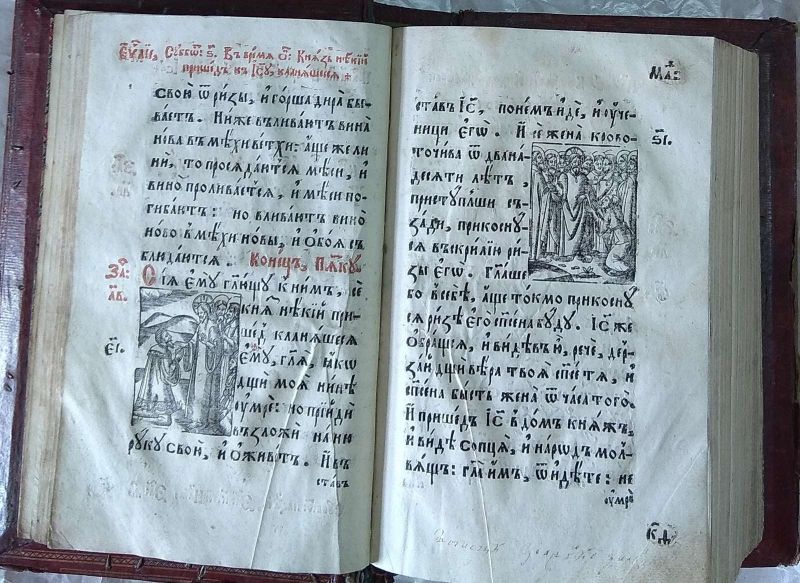 Еѵⷢ҇лїи, Суббѡ҃: ѕ҃. Въ время ѻ҃: Князь нѣкїй
пришедъ къ Іс҃у, кланяшеся
свой ѿ ризы, и горша дира бы-
ваетъ. Ниже вливаютъ вина
нова въ мѣхи ветхи: аще же ли
ни, то просядаются мѣси, и
вино проливается, и мѣси по-
гибаютъ: но вливаютъ вино
ново в мѣхи новы, и обоя съ
блюдаются. Конецъ, Пятку.
За҃: Сія ему гл҃ющу к ним, се
л҃в. княз нѣкїй при-
шед кланяшеся
е҃і. ему, гл҃я, ꙗкѡ
дщи моя нн҃ѣ
ѹмре: но прїйди
възложи на ню
руку свою, и оживетъ. И въ
ставъ
Маѳ:
ставъ Іс҃, по нем иде, и ѹче-
ници егѡ. И се жена крово- ѕ҃і.
точива ѿ двана-
десяти лѣтъ,
приступльши съ
зади, прикосну-
ся въскрилїи ри-
зы егѡ. Гл҃аше
бо в себѣ, аще токмо прикосну
ся ризѣ его сп҃сена буду. Іс҃ же
обращся, и видѣвъ ю, рече, дер-
зай дщи вѣра твоя сп҃се тя, и
сп҃сена бысть жена ѿ часа того.
И пришед Іс҃ в дом княжъ,
и видѣ сопця, и народъ мол-
вящъ: гл҃а им, ѿидѣте: не
ѹмре
к҃д